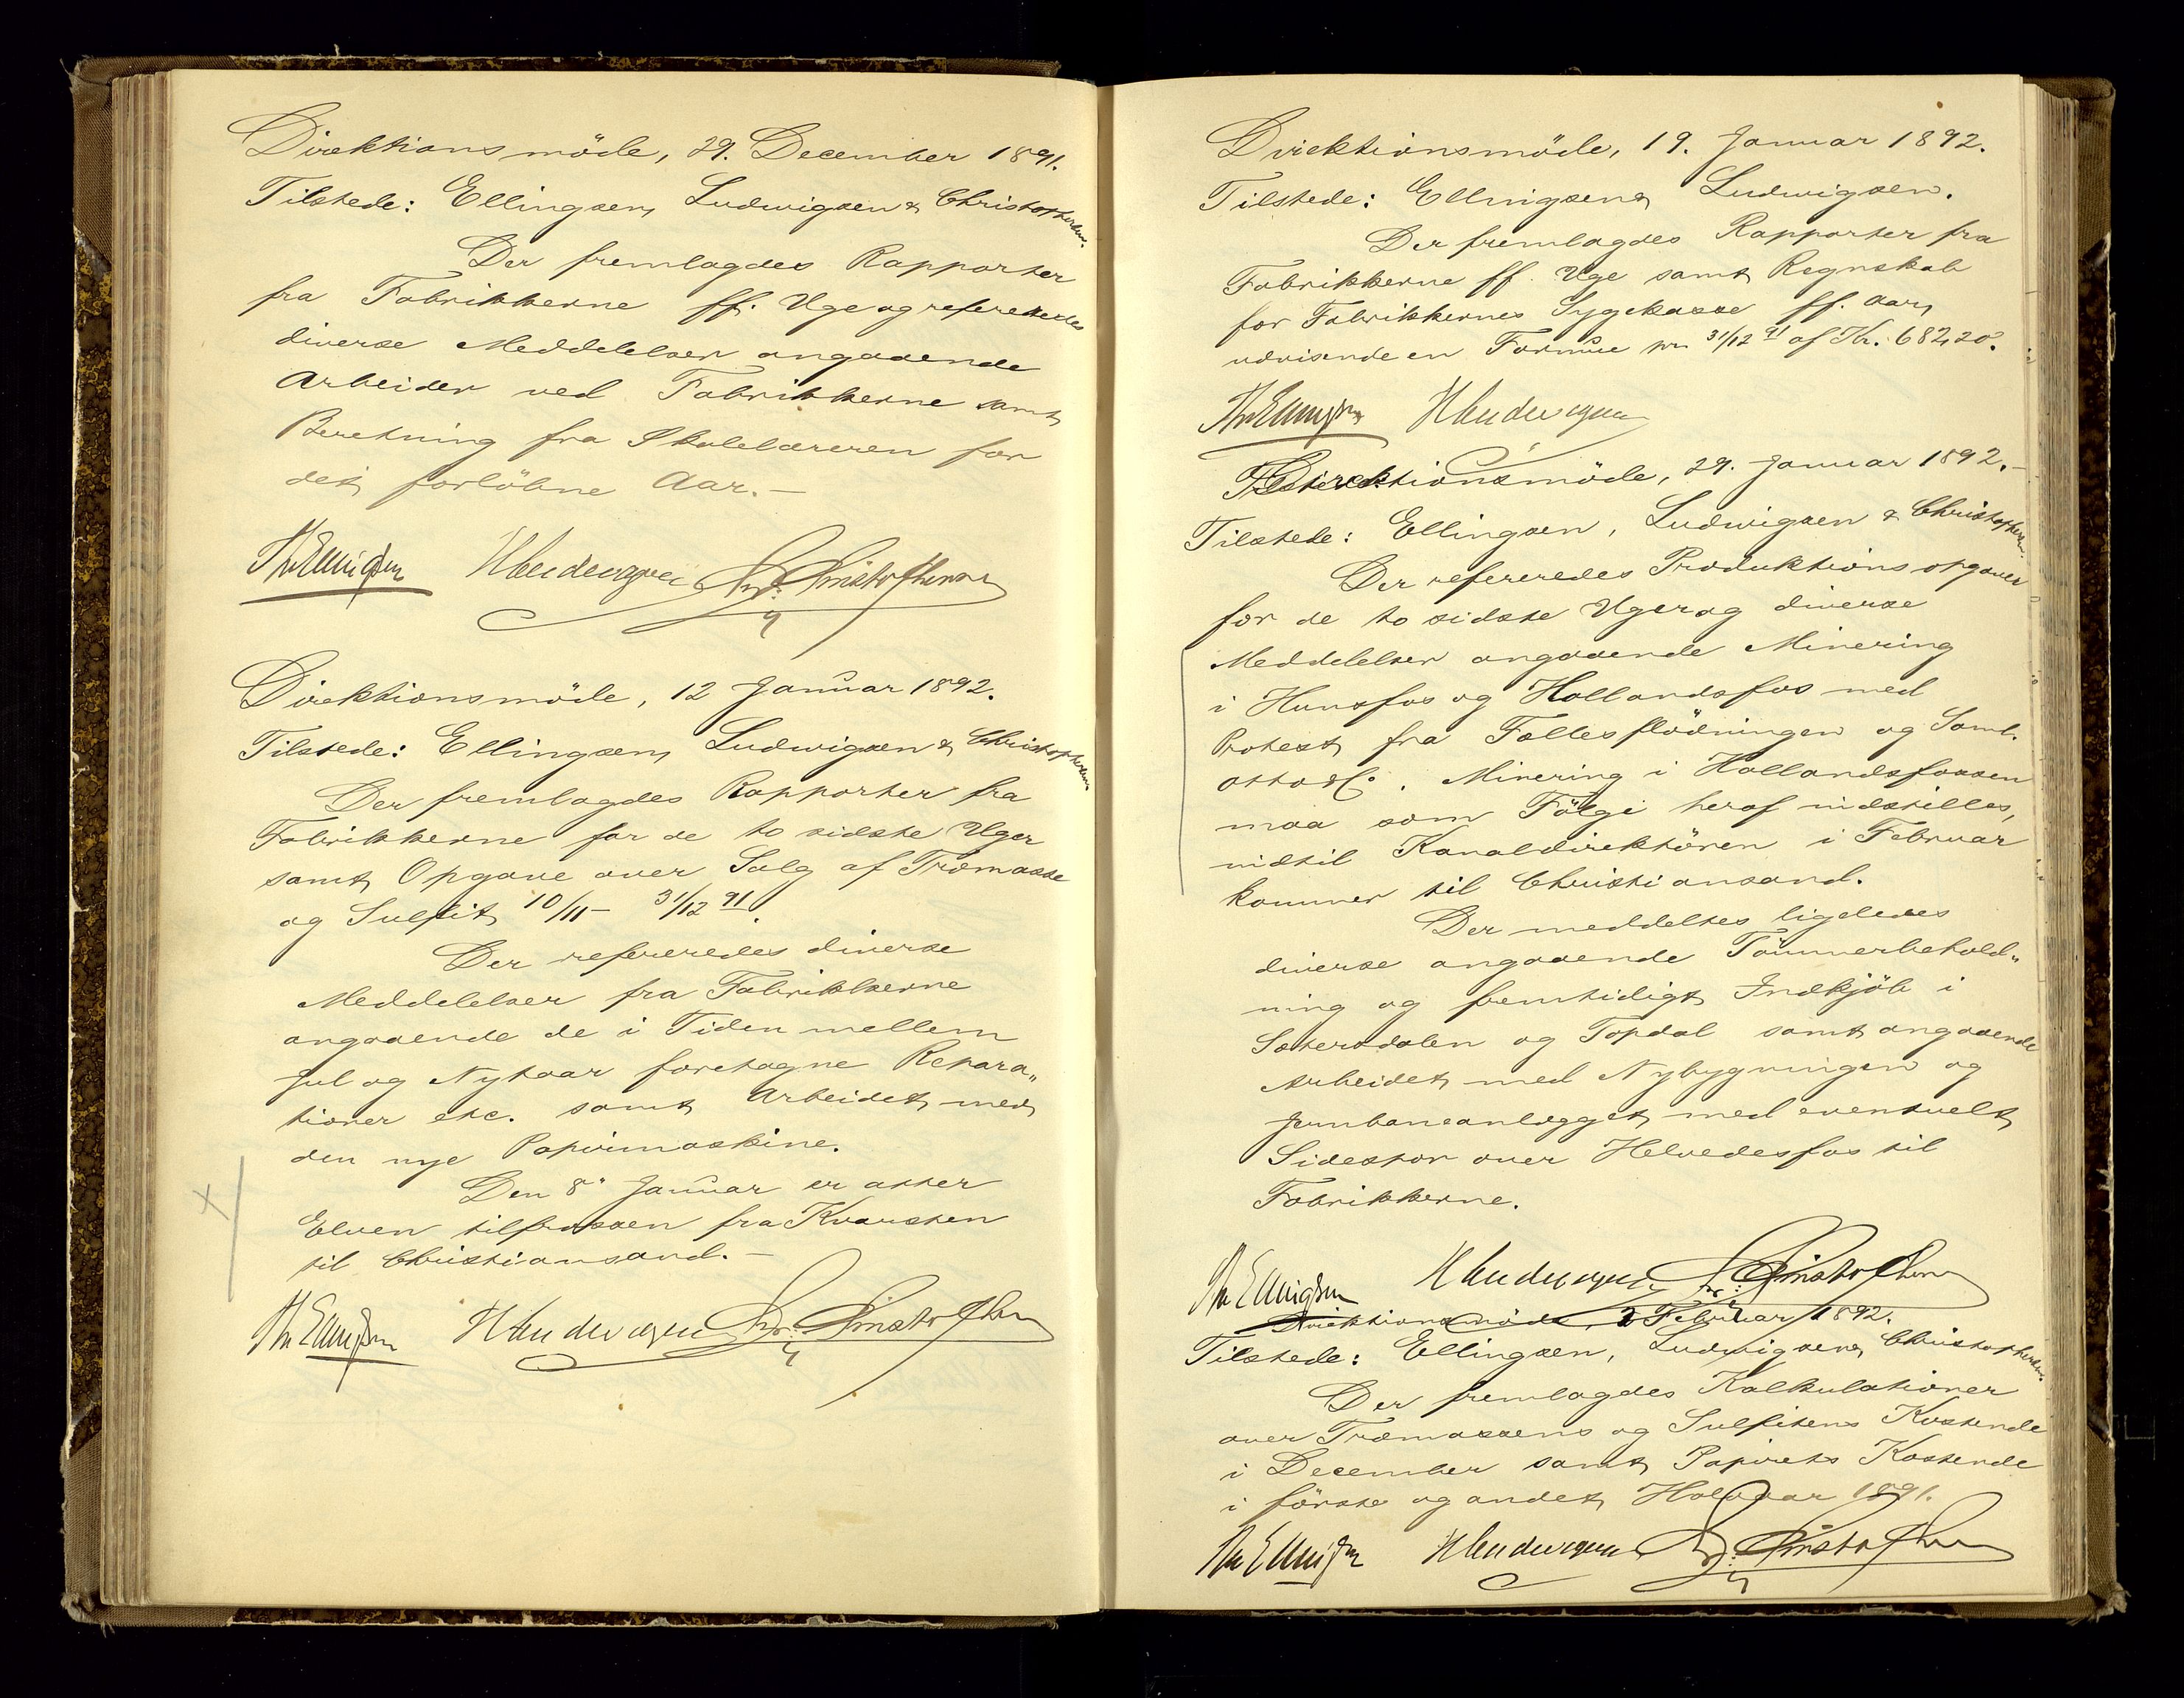 Direktionsmöde, 29. December 1891.
Tilstede: Ellingsen, Ludwigsen & Christophersen.
Der fremlagdes Rapporter
fra Fabrikkerne ff. Uge og refereredes
diverse Meddelelser angaaende
Arbeider ved Fabrikkerne samt
Beretning fra Skolelæreren for
det forlöbne Aar.—
Th Ellingsen H Ludwigsen Chr. Christophersen
Direktionsmöde, 12 Januar 1892.
Tilstede: Ellingsen, Ludwigsen & Christophersen
Der fremlagdes Rapporter fra
Fabrikkerne for de to sidste Uger
samt Opgave over Salg af Træmasse
og Sulfit 10/11 – 31/12 91.
Der refereredes diverse
Meddelelser fra Fabrikkerne
angaaende de i Tiden mellem
Jul og Nytaar foretagne Repara„
tioner etc. samt Arbeidet med
den nye Papirmaskine.
Den 8de Januar er atter
Elven tilfrossen fra Kvarsten
til Christiansand.—
Th Ellingsen H Ludwigsen Chr. Christophersen
Direktionsmöde, 19. Januar 1892.
Tilstede: Ellingsen & Ludwigsen.
Der fremlagdes Rapporter fra
Fabrikkerne ff. Uge samt Regnskab
for Fabrikkernes Sygekasse ff. Aar,
udvisende en Formue pr. 31/12 91 af Kr. 682,20.
Th Ellingsen H Ludwigsen
Direktionsmöde, 29. Januar 1892.—
Tilstede: Ellingsen, Ludwigsen & Christophersen.
Der refereredes Produktionsopgaver
for de to sidste Uger og diverse
Meddelelser angaaende Minering
i Hunsfos og Hallandsfos med
Protest fra Fællesflödningen og Saml.
Otto & Co. Minering i Hallandsfossen
maa som Fölge heraf indstilles,
indtil Kanaldirektören i Februar
kommer til Christiansand.
Der meddeltes ligeledes
diverse angaaende Tömmerbehold„
ning og fremtidigt Indkjöb i
Sætersdalen og Topdal samt angaaende
Arbeidet med Nybygningen og
Jernbaneanlægget med eventuelt
Sidespor over Helvedesfos til
Fabrikkerne.
Th Ellingsen H Ludwigsen Chr. Christophersen
Direktionsmöde, 2 Februar 1892.
Tilstede: Ellingsen, Ludwigsen & Christophersen.
Der fremlagdes Kalkulationer
over Træmassens og Sulfitens Kostende
i December samt Papirets Kostende
i förste og andet Halvaar 1891.
Th Ellingsen H Ludwigsen Chr. Christophersen